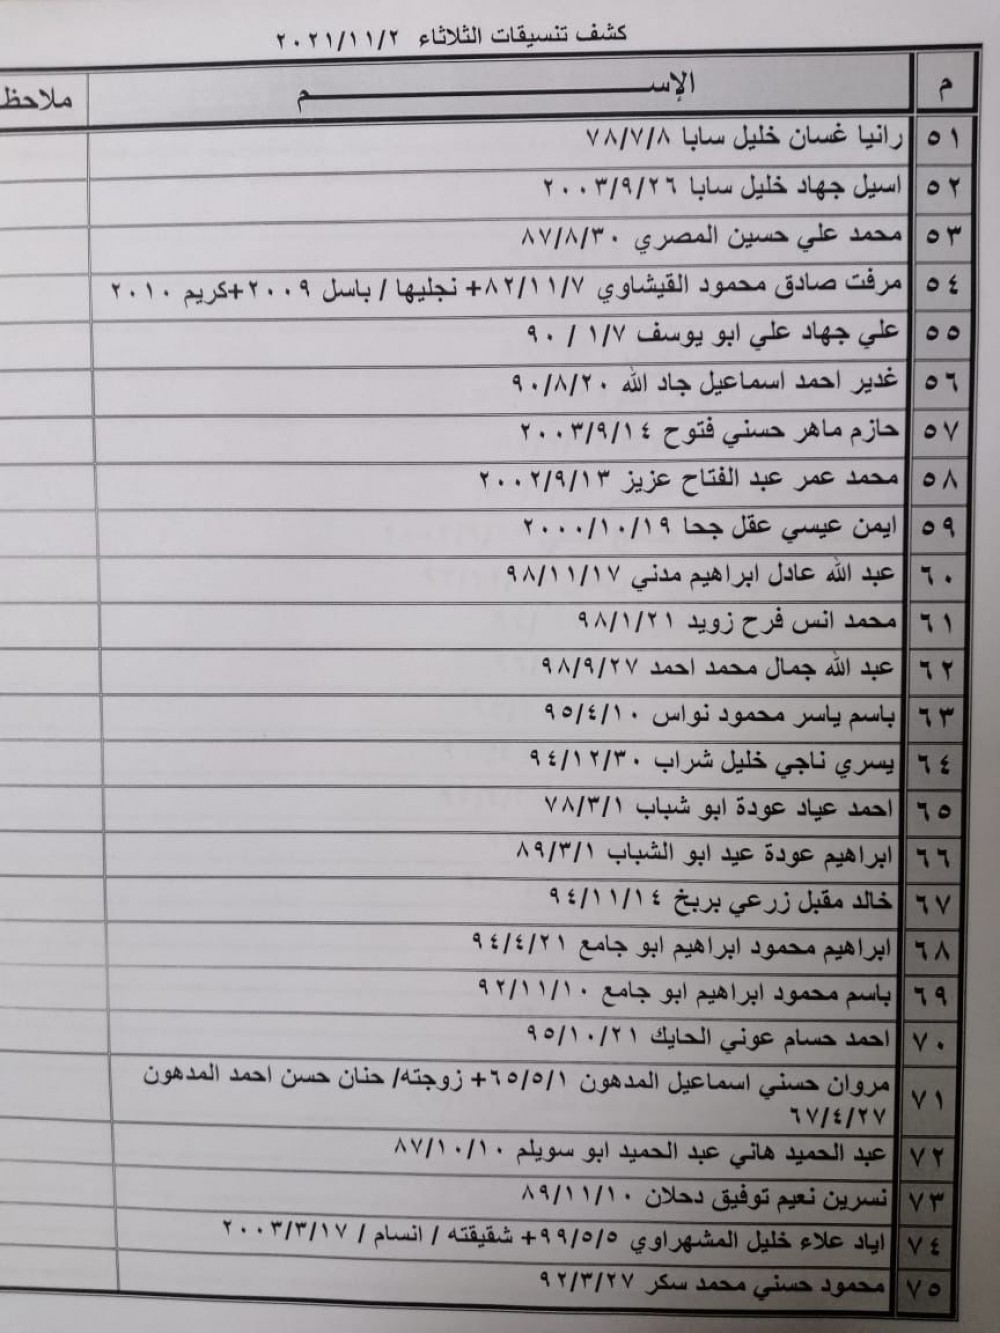 كشف تنسيقات الثلاثاء ٢٠٢١/١١/٢
م الإســـــــــــــــــــم ملاحظ
٥١ رانيا غسان خليل سابا ٧٨/٧/٨
٥٢ اسيل جهاد خليل سابا ٢٠٠٣/٩/٢٦
٥٣ محمد علي حسين المصري ٨٧/٨/٣٠
٥٤ مرفت صادق محمود القيشاوي ٨٢/١١/٧+ نجليها / باسل ٢٠٠٩+كريم ٢٠١٠
٥٥ علي جهاد علي ابو يوسف ١/٧ / ٩٠
٥٦ غدير احمد اسماعيل جاد الله ٩٠/٨/٢٠
٥٧ حازم ماهر حسني فتوح ٢٠٠٣/٩/١٤
٥٨ محمد عمر عبد الفتاح عزيز ٢٠٠٢/٩/١٣
٥٩ ايمن عيسي عقل جحا ٢٠٠٠/١٠/١٩
٦٠ عبد الله عادل ابراهيم مدني ٩٨/١١/١٧
٦١ محمد انس فرح زويد ٩٨/١/٢١
٦٢ عبد الله جمال محمد احمد ٩٨/٩/٢٧
٦٣ باسم ياسر محمود نواس ٩٥/٤/١٠
٦٤ يسري ناجي خليل شراب ٩٤/١٢/٣٠
٦٥ احمد عياد عودة ابو شباب ٧٨/٣/١
٦٦ ابراهيم عودة عيد ابو الشباب ٨٩/٣/١
٦٧ خالد مقبل زرعي بربخ ٩٤/١١/١٤
٦٨ ابراهيم محمود ابراهيم ابو جامع ٩٤/٤/٢١
٦٩ باسم محمود ابراهيم ابو جامع ٩٢/١١/١٠
٧٠ احمد حسام عوني الحايك ٩٥/١٠/٢١
٧١ مروان حسني اسماعيل المدهون ٦٥/٥/١+ زوجته/ حنان حسن احمد المدهون
٦٧/٤/٢٧
٧٢ عبد الحميد هاني عبد الحميد ابو سويلم ٨٧/١٠/١٠
٧٣ نسرين نعيم توفيق دحلان ٨٩/١١/١٠
٧٤ اياد علاء خليل المشهراوي ٩٩/٥/٥+ شقيقته / انسام / ٢٠٠٣/٣/١٧
٧٥ محمود حسني محمد سكر ٩٢/٣/٢٧